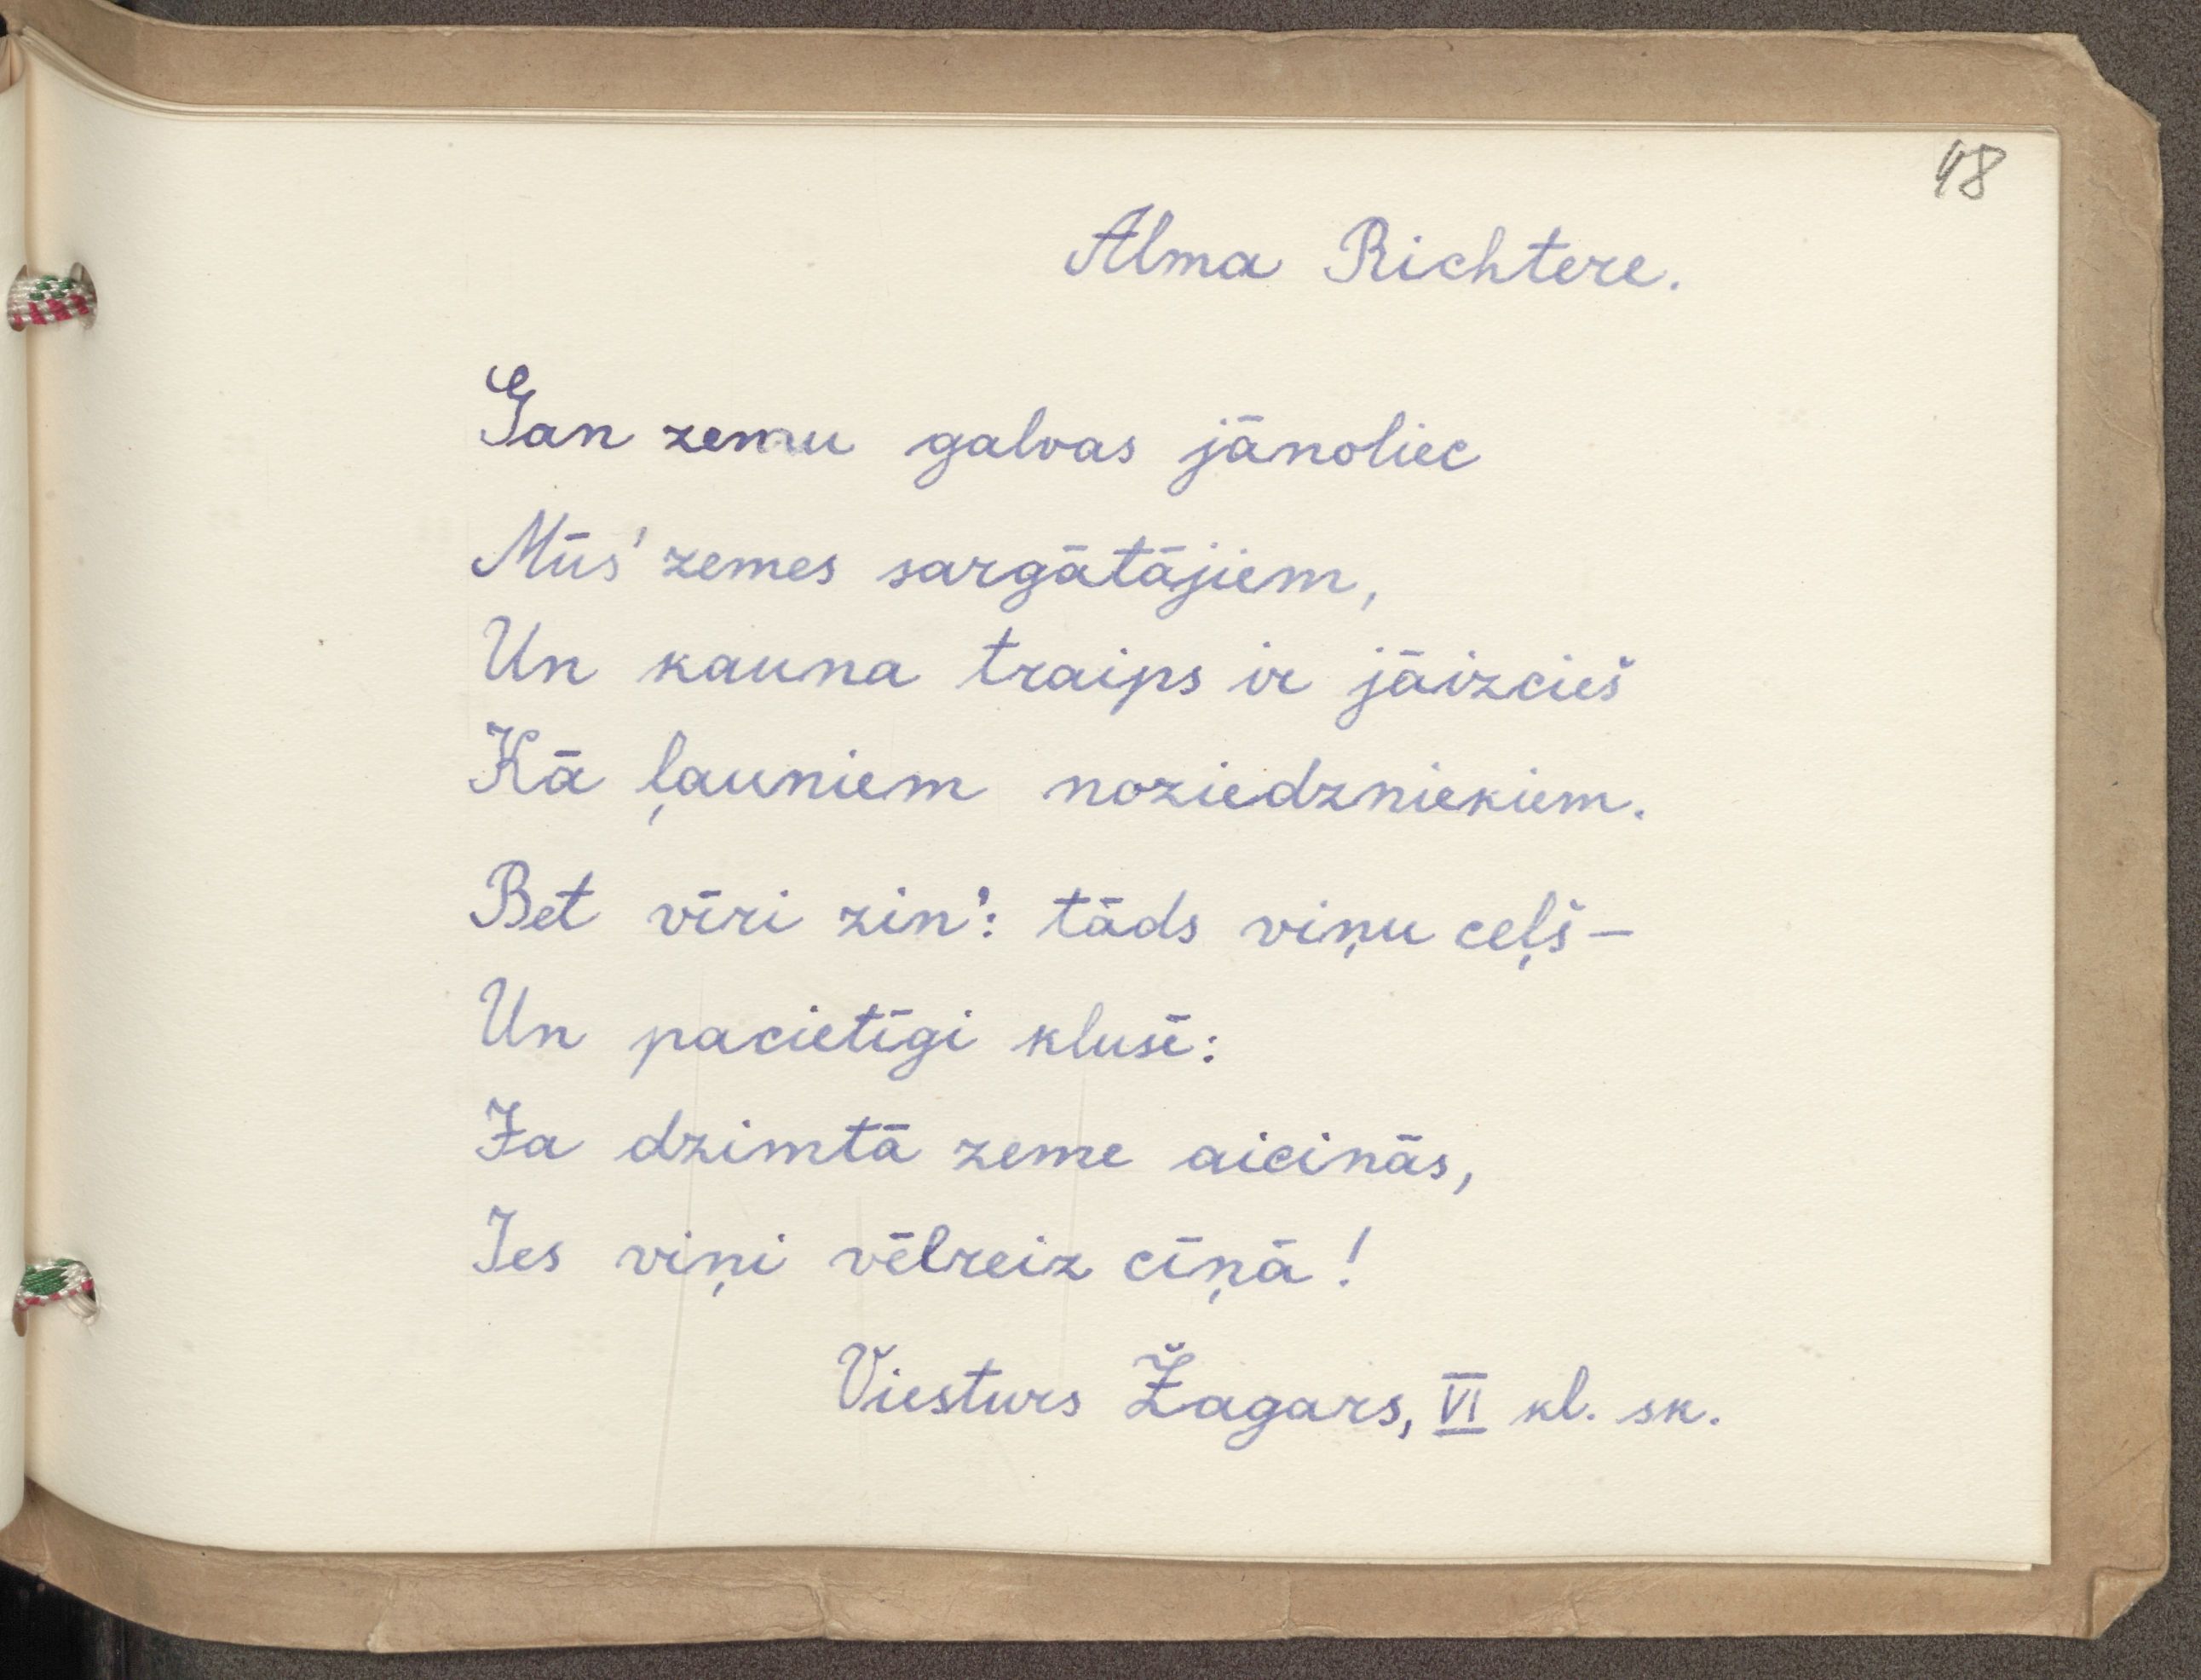 48
Alma Richtere.
Gan zemu galvas jānoliec
Mūs' zemes sargātājiem,
Un kauna traips ir jāizcieš
Kā ļauniem noziedzniekiem.
Bet vīri zin': tāds viņu ceļš—
Un pacietīgi klusē:
Ja dzimtā zeme aicinās,
Ies viņi vēlreiz cīņā!
Viesturs Žagars, VI kl. sk.